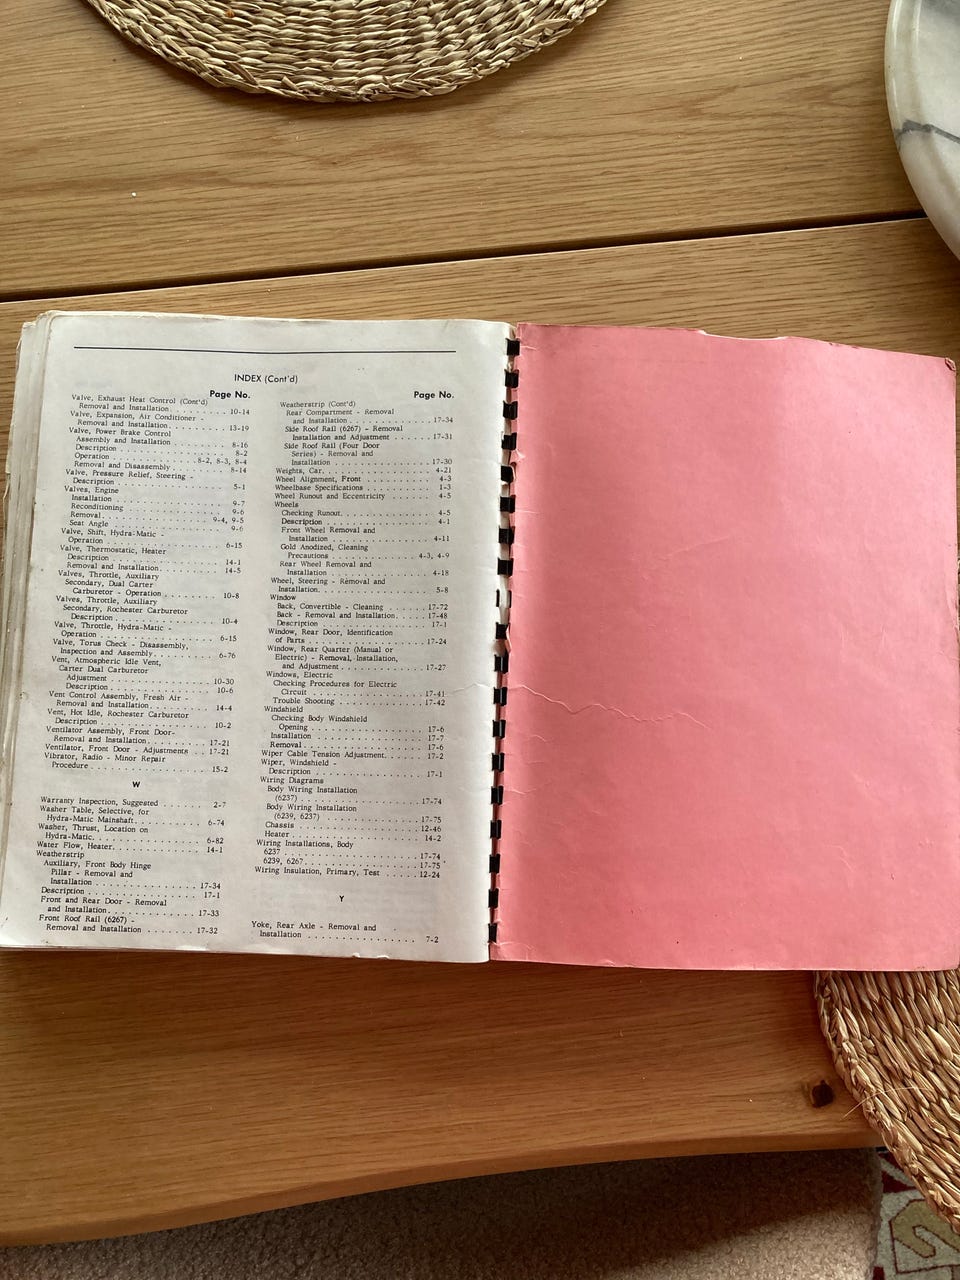 INDEX (Cont'd)
Page No.
Valve, Exhaust Heat Control (Cont'd)
Removal and Installation. . . . . . . . . 10-14
Valve, Expansion, Air Conditioner -
Removal and Installation. . . . . . . . . 13-19
Valve, Power Brake Control
Assembly and Installation . . . . . . . . 8-16
Description . . . . . . . . . . . . . . 8-2
Operation . . . . . . . . . . . 8-2, 8-3, 8-4
Removal and Disassembly . . . . . . . . 8-14
Valve, Pressure Relief, Steering -
Description . . . . . . . . . . . . . . 5-1
Valves, Engine
Installation . . . . . . . . . . . . . . 9-7
Reconditioning . . . . . . . . . . . . . 9-6
Removal. . . . . . . . . . . . . . . 9-4, 9-5
Seat Angle . . . . . . . . . . . . . . . 9-6
Valve, Shift, Hydra-Matic -
Operation . . . . . . . . . . . . . . . 6-15
Valve, Thermostatic, Heater
Description . . . . . . . . . . . . . . 14-1
Removal and Installation. . . . . . . . . 14-5
Valves, Throttle, Auxiliary
Secondary, Dual Carter
Carburetor - Operation . . . . . . . . . 10-8
Valves, Throttle, Auxiliary
Secondary, Rochester Carburetor
Description . . . . . . . . . . . . . . 10-4
Valve, Throttle, Hydra-Matic -
Operation . . . . . . . . . . . . . . . 6-15
Valve, Torus Check - Disassembly,
Inspection and Assembly. . . . . . . . . 6-76
Vent, Atmospheric Idle Vent,
Carter Dual Carburetor
Adjustment . . . . . . . . . . . . . . 10-30
Description . . . . . . . . . . . . . . 10-6
Vent Control Assembly, Fresh Air -
Removal and Installation. . . . . . . . . 14-4
Vent, Hot Idle, Rochester Carburetor
Description . . . . . . . . . . . . . . 10-2
Ventilator Assembly, Front Door-
Removal and Installation. . . . . . . . . 17-21
Ventilator, Front Door - Adjustments . . . 17-21
Vibrator, Radio - Minor Repair
Procedure . . . . . . . . . . . . . . . 15-2
W
Warranty Inspection, Suggested . . . . . . 2-7
Washer Table, Selective, for
Hydra-Matic Mainshaft. . . . . . . . . . 6-74
Washer, Thrust, Location on
Hydra-Matic. . . . . . . . . . . . . . 6-82
Water Flow, Heater. . . . . . . . . . . . 14-1
Weatherstrip
Auxiliary, Front Body Hinge
Pillar - Removal and
Installation . . . . . . . . . . . . . . 17-34
Description . . . . . . . . . . . . . . 17-1
Front and Rear Door - Removal
and Installation. . . . . . . . . . . . . 17-33
Front Roof Rail (6267) -
Removal and Installation . . . . . . . . 17-32
Page No.
Weatherstrip (Cont'd)
Rear Compartment - Removal
and Installation . . . . . . . . . . . . 17-34
Side Roof Rail (6267) - Removal
Installation and Adjustment . . . . . . . 17-31
Side Roof Rail (Four Door
Series) - Removal and
Installation . . . . . . . . . . . . . . 17-30
Weights, Car. . . . . . . . . . . . . . . 4-21
Wheel Alignment, Front . . . . . . . . . . 4-3
Wheelbase Specifications . . . . . . . . . 1-3
Wheel Runout and Eccentricity . . . . . . 4-5
Wheels
Checking Runout. . . . . . . . . . . . . 4-5
Description . . . . . . . . . . . . . . 4-1
Front Wheel Removal and
Installation . . . . . . . . . . . . . . 4-11
Gold Anodized, Cleaning
Precautions . . . . . . . . . . . . 4-3, 4-9
Rear Wheel Removal and
Installation . . . . . . . . . . . . . . 4-18
Wheel, Steering - Removal and
Installation. . . . . . . . . . . . . . . 5-8
Window
Back, Convertible - Cleaning . . . . . . 17-72
Back - Removal and Installation. . . . . 17-48
Description . . . . . . . . . . . . . . 17-1
Window, Rear Door, Identification
of Parts . . . . . . . . . . . . . . . . 17-24
Window, Rear Quarter (Manual or
Electric) - Removal, Installation,
and Adjustment . . . . . . . . . . . . . 17-27
Windows, Electric
Checking Procedures for Electric
Circuit . . . . . . . . . . . . . . . . 17-41
Trouble Shooting . . . . . . . . . . . . 17-42
Windshield
Checking Body Windshield
Opening . . . . . . . . . . . . . . . . 17-6
Installation . . . . . . . . . . . . . . 17-7
Removal . . . . . . . . . . . . . . . . 17-6
Wiper Cable Tension Adjustment. . . . . . 17-2
Wiper, Windshield -
Description . . . . . . . . . . . . . . 17-1
Wiring Diagrams
Body Wiring Installation
(6237) . . . . . . . . . . . . . . . . 17-74
Body Wiring Installation
(6239, 6237) . . . . . . . . . . . . . 17-75
Chassis . . . . . . . . . . . . . . . . 12-46
Heater . . . . . . . . . . . . . . . . . 14-2
Wiring Installations, Body
6237 . . . . . . . . . . . . . . . . . . 17-74
6239, 6267. . . . . . . . . . . . . . . . 17-75
Wiring Insulation, Primary, Test . . . . . 12-24
Y
Yoke, Rear Axle - Removal and
Installation . . . . . . . . . . . . . . 7-2